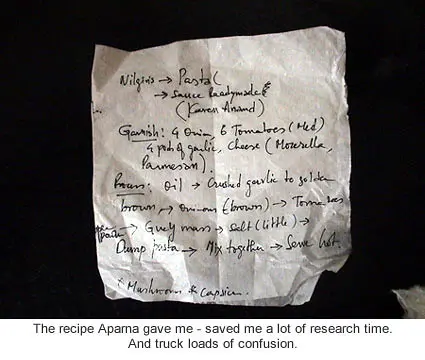 Nilgiris → Pasta (
→ Sauce Readymade
(Karen Anand)
Garnish: 4 Onion, 6 Tomatoes (Med)
4 pods of garlic, Cheese (Mozerella,
Parmesan).
Process: Oil → Crushed garlic to golden
brown → Onions (brown) → Tomatoes
→ Guey mass → Salt (little) →
Dump pasta → Mix together → Serve hot.
* Mushrooms & Capsicum
The recipe Aparna gave me - saved me a lot of research time.
And truck loads of confusion.